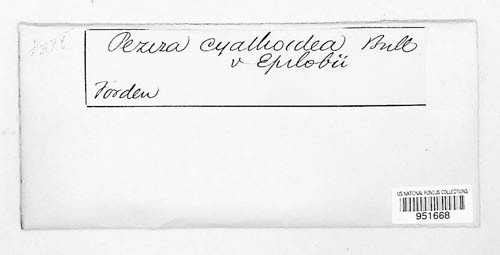 Peziza cyathoidea Bull
v Epilobii
Forden
US NATIONAL FUNGUS COLLECTIONS
951668